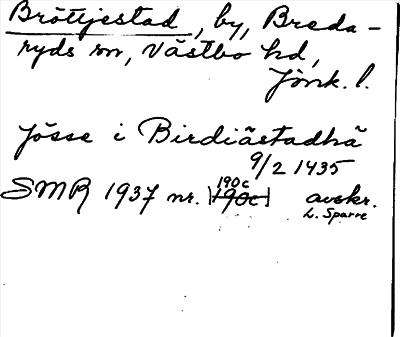 Bröttjestad, by, Breda-
ryds sn, Västbo hd,
Jönk. l.
Jösse i Birdiästadhä
9/2 1435
SMR 1937 nr. 190c avskr.
L. Sparre